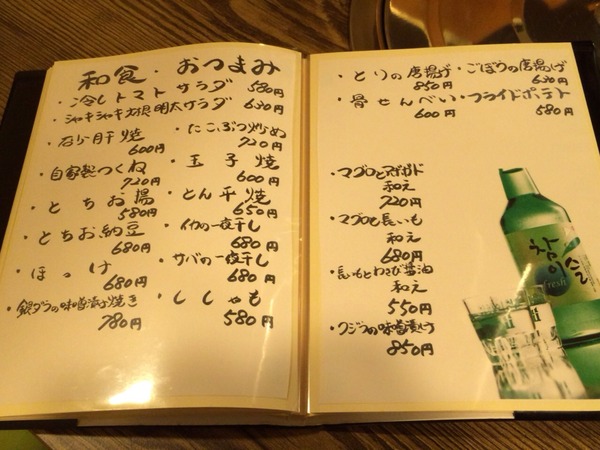 和食・おつまみ
・冷しトマトサラダ 580円
・シャキシャキ大根明太サラダ 630円
600円
・たこぶつ炒め
720円
・自家製つくね
720円
・玉子焼
600円
・とちお揚
580円
・とん平焼
650円
・とちお納豆
680円
・イカの一夜干し
680円
・ほっけ
680円
・サバの一夜干し
680円
・銀ダラの味噌漬け焼き
780円
・ししゃも
580円
・とりの唐揚げ・ごぼうの唐揚げ
850円 630円
・骨せんべい・フライドポテト
600円 580円
・マグロとアボガド
和え
720円
・マグロと長いも
和え
680円
・長いもとわさび醤油
和え
550円
・クジラの味噌漬け
850円
참이슬
fresh